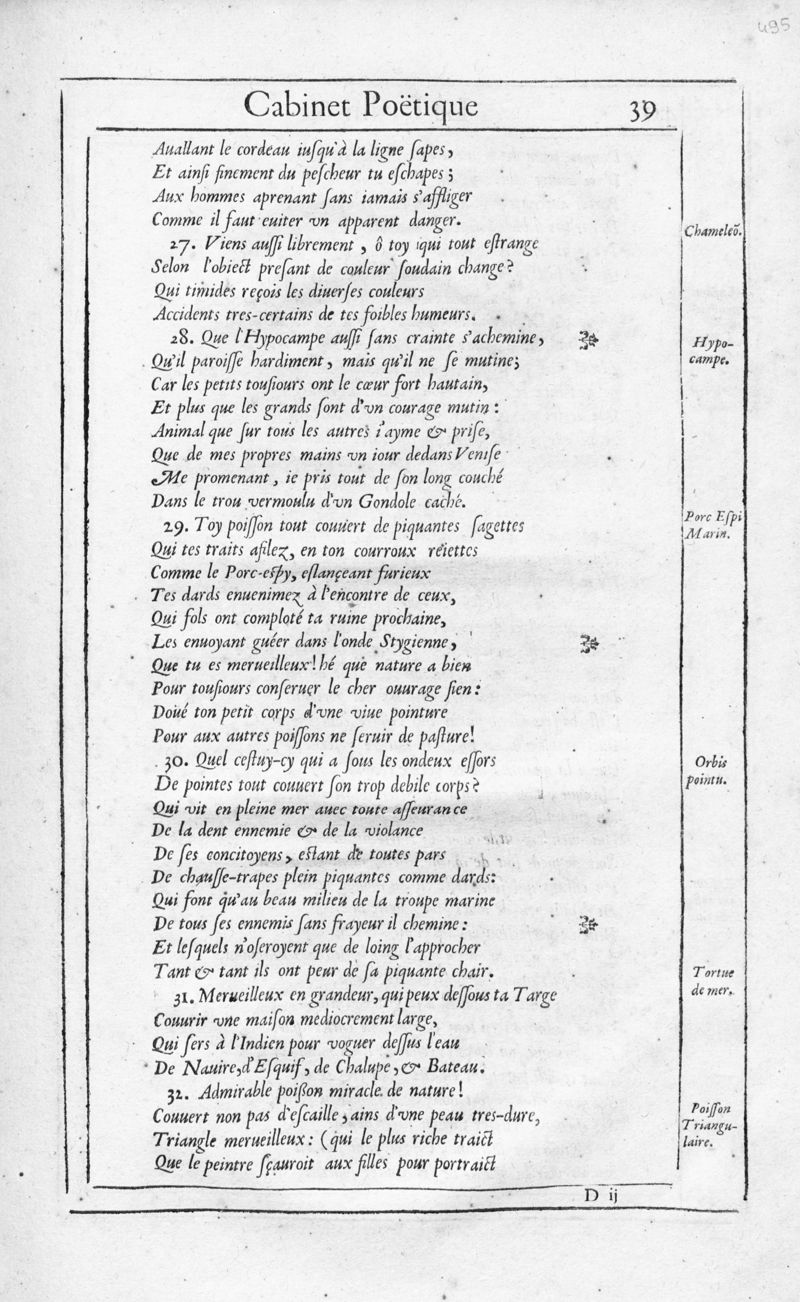 495
Cabinet Poëtique 39
Auallant le cordeau iuſqu'à la ligne ſapes,
Et ainſi finement du peſcheur tu eſchapes;
Aux hommes aprenant ſans iamais s'affliger
Comme il faut euiter vn apparent danger.
Chameleõ.
27. Viens auſſi librement, ô toy qui tout eſtrange
Selon l'obiect preſant de couleur ſoudain change?
Qui timides reçois les diuerſes couleurs
Accidents tres-certains de tes foibles humeurs.
28. Que l'Hypocampe auſſi ſans crainte s'achemine,
Hypo-
campe.
Qu'il paroiſſe hardiment, mais qu'il ne ſe mutine;
Car les petits touſiours ont le cœur fort hautain,
Et plus que les grands ſont d'vn courage mutin:
Animal que ſur tous les autres i'ayme & priſe,
Que de mes propres mains vn iour dedans Veniſe
Me promenant, ie pris tout de ſon long couché
Dans le trou vermoulu d'vn Gondole caché.
29. Toy poiſſon tout couuert de piquantes ſagettes
Porc Eſpi
Marin.
Qui tes traits afilez, en ton courroux reiettes
Comme le Porc-eſpy, eſlançeant furieux
Tes dards enuenimez à l'encontre de ceux,
Qui fols ont comploté ta ruine prochaine,
Les enuoyant guéer dans l'onde Stygienne,
Que tu es merueilleux! hé que nature a bien
Pour touſiours conſeruer le cher ouurage ſien:
Doüé ton petit corps d'vne viue pointure
Pour aux autres poiſſons ne ſeruir de paſture!
30. Quel ceſtuy-cy qui a ſous les ondeux eſſors
Orbis
pointu.
De pointes tout couuert ſon trop debile corps?
Qui vit en pleine mer auec toute aſſeurance
De la dent ennemie & de la violance
De ſes concitoyens, eſtant de toutes pars
De chauſſe-trapes plein piquantes comme dards:
Qui font qu'au beau milieu de la troupe marine
De tous ſes ennemis ſans frayeur il chemine:
Et leſquels n'oſeroyent que de loing l'approcher
Tant & tant ils ont peur de ſa piquante chair.
Tortue
de mer.
31. Merueilleux en grandeur, qui peux deſſous ta Targe
Couurir vne maiſon mediocrement large,
Qui ſers à l'Indien pour voguer deſſus l'eau
De Nauire, d'Eſquif, de Chalupe, & Bateau.
32. Admirable poiſſon miracle de nature!
Couuert non pas d'eſcaille, ains d'vne peau tres-dure,
Poiſſon
Triangu-
laire.
Triangle merueilleux: (qui le plus riche traict
Que le peintre ſçauroit aux filles pour portraict
D ij